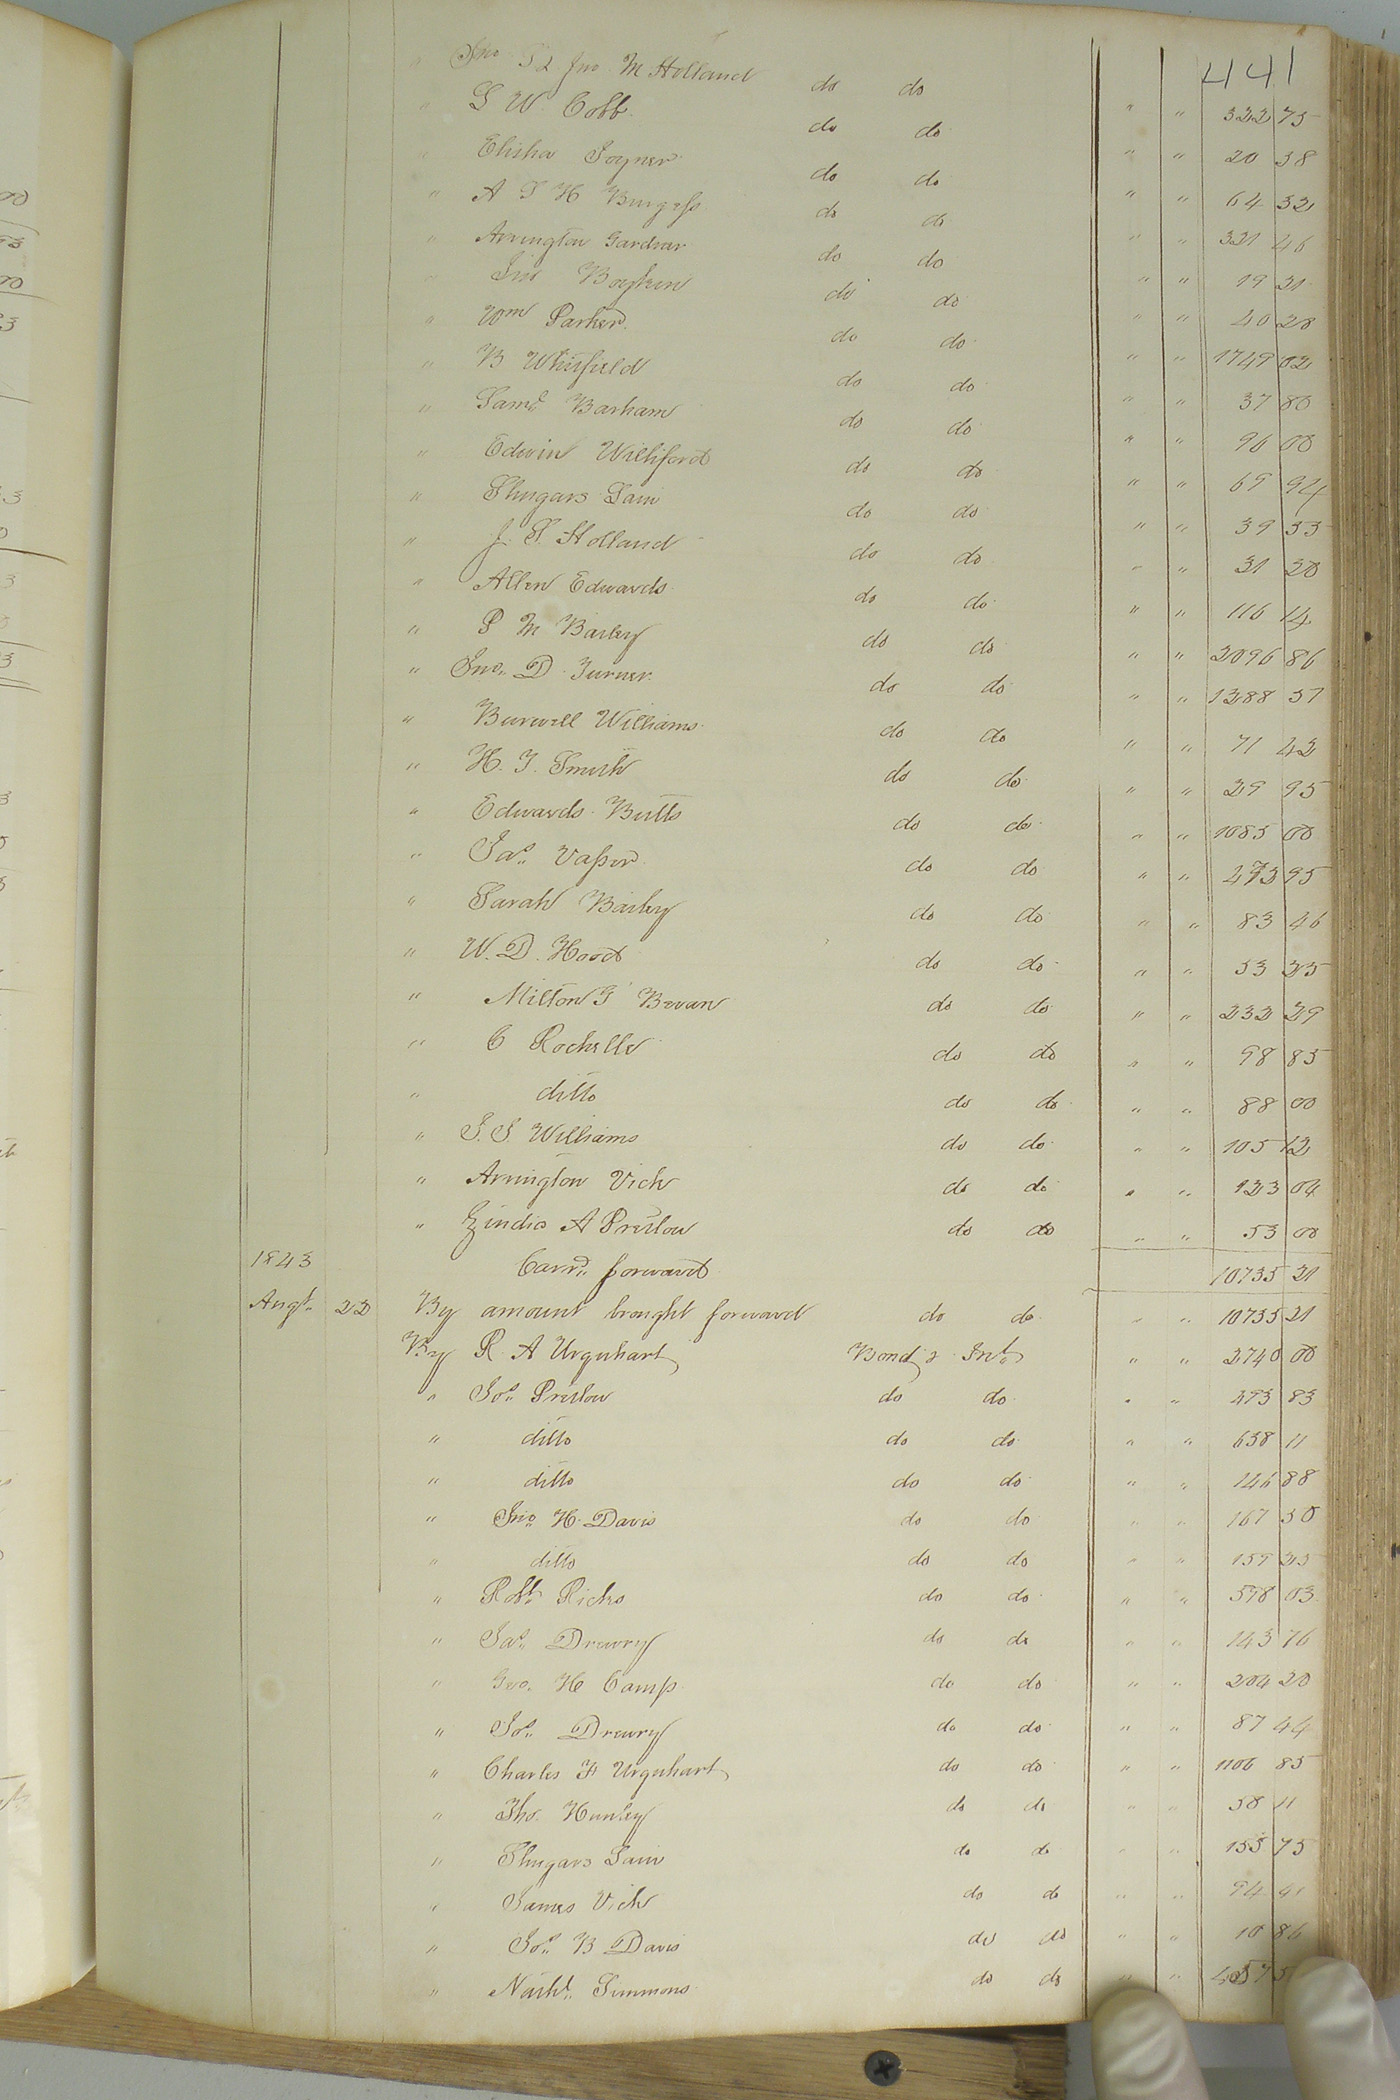 441
" Jno T & Jno M Holland do do " " 322 75
" G W Cobb do do " " 20 38
" Elisha Joyner do do " " 64 32
" A T H Burgess do do " " 321 46
" Arrington Gardner do do " " 19 31
" Jno Boykin do do " " 40 28
" Wm Parker do do " " 1749 02
" B Whitfield do do " " 37 80
" Saml Barham do do " " 96 00
" Edwin Williford do do " " 69 94
" Shugars Lain do do " " 39 55
" J. T. Holland do do " " 31 20
" Allen Edwards do do " " 116 14
" P M Barley do do " " 2096 86
" Jno. D. Turner do do " " 1388 57
" Burwell Williams do do " " 71 42
" H. T. Smith do do " " 29 95
" Edwards Butts do do " " 1085 00
" Jas. Vasser do do " " 95
" Sarah Bailey do do " " 83 46
" W. D. Hood do do " " 53 25
" Milton G Bevan do do " " 232 29
" C Rochelle do do " " 98 85
" ditto do do " " 88 00
" J. J. Williams do do " " 105 12
" Arrington Vick do do " " 123 04
" A Pretlow do do " " 53 00
1843 Carrd. forward 10735 21
Augt. 22 By amount brought forward do do " " 10735 21
By R A Urquhart Bond & Int. " " 2740 00
" Jos. Pretlow do do " " 293 83
" ditto do do " " 638 11
" ditto do do " " 146 88
" Jno. H. Davis do do " " 167 50
" ditto do do " " 159 25
" Robt. Ricks do do " " 578 03
" Jas. Drewry do do " " 143 76
" Geo. H Camp do do " " 204 20
" Jos. Drewry do do " " 87 44
" Charles F Urquhart do do " " 1106 85
" Tho. Hunley do do " " 58 11
" Shugars Lain do do " " 155 75
" James Vick do do " " 94
" Jos. B Davis do do " " 10 86
" Nathl. Simmons do do " "